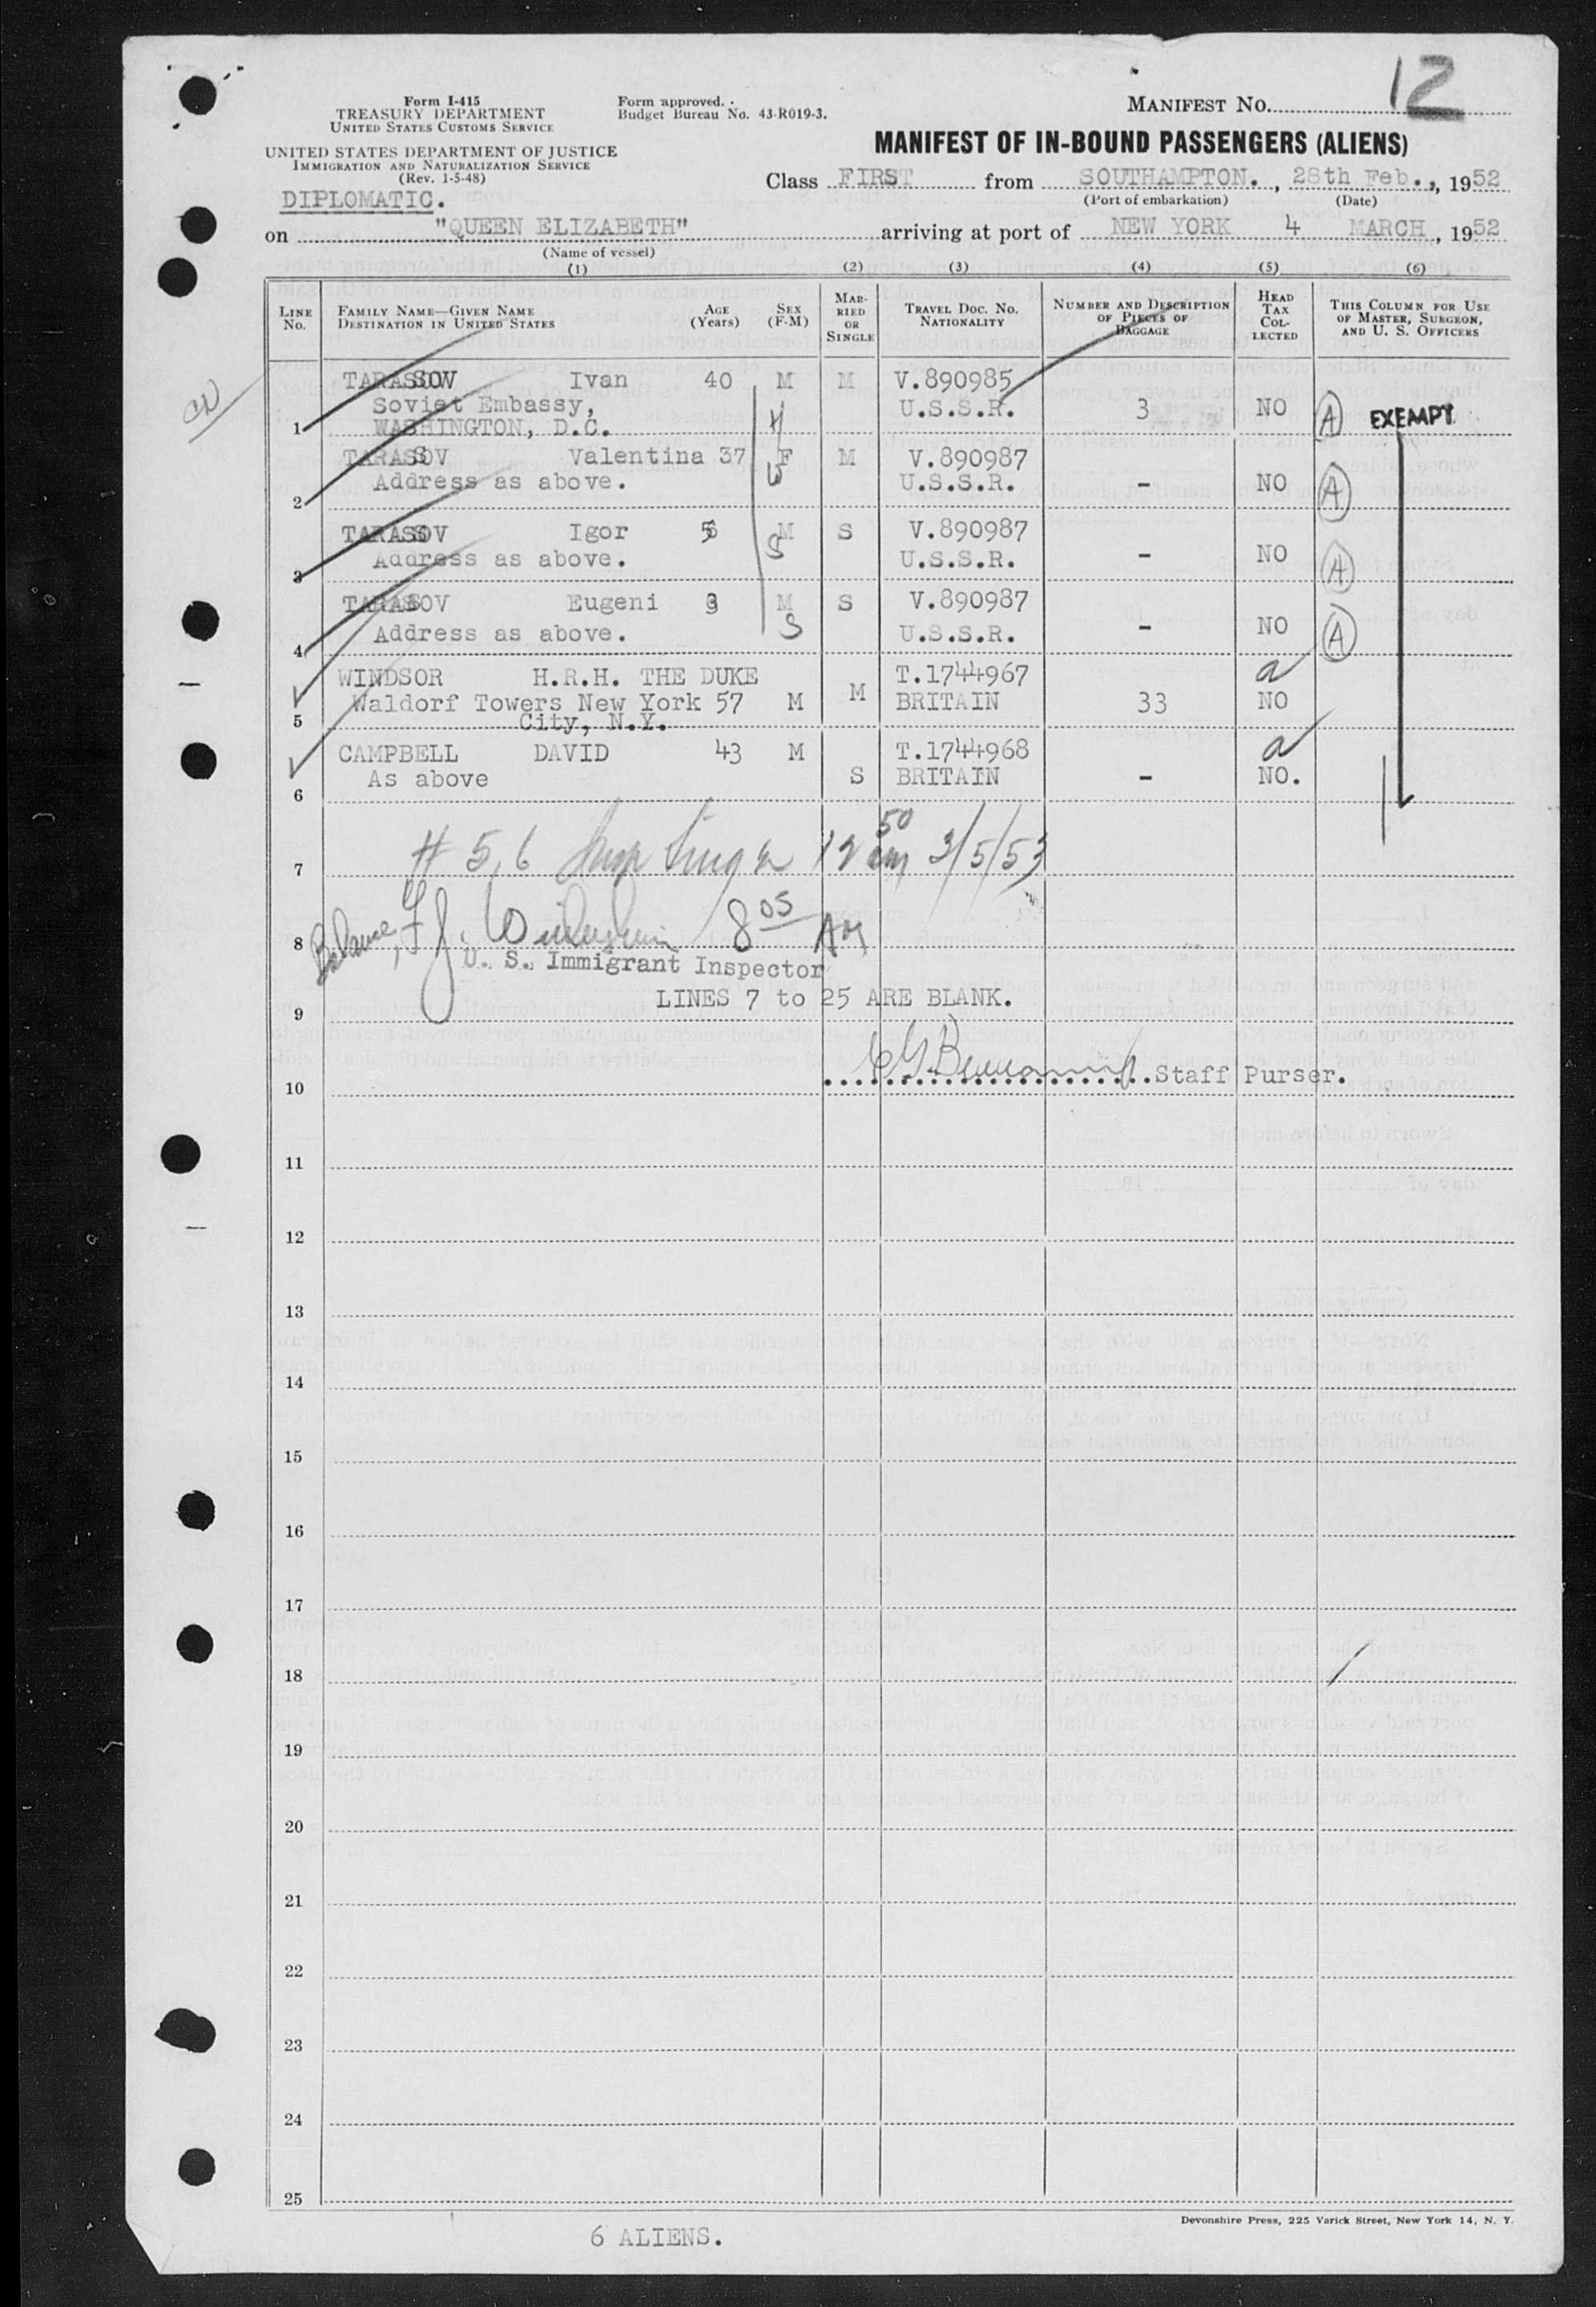 12
Form I-415
TREASURY DEPARTMENT
UNITED STATES CUSTOMS SERVICE
UNITED STATES DEPARTMENT OF JUSTICE
IMMIGRATION AND NATURALIZATION SERVICE
(Rev. 1-5-48)
Form approved.
Budget Bureau No. 43-R019-3.
MANIFEST NO.
MANIFEST OF IN-BOUND PASSENGERS (ALIENS)
Class FIRST from SOUTHAMPTON., 28th Feb., 1952
(Port of embarkation) (Date)
DIPLOMATIC.
on "QUEEN ELIZABETH" arriving at port of NEW YORK 4 MARCH, 1952
(Name of vessel)
(1) (2) (3) (4) (5) (6)
LINE No. FAMILY NAME—GIVEN NAME DESTINATION IN UNITED STATES AGE (Years) SEX (F-M) MARRIED OR SINGLE TRAVEL DOC. NO. NATIONALITY NUMBER AND DESCRIPTION OF PIECES OF BAGGAGE HEAD TAX COLLECTED THIS COLUMN FOR USE OF MASTER, SURGEON, AND U. S. OFFICERS
TARASOV Ivan 40 M M V.890985
Soviet Embassy, H U.S.S.R. 3 NO A EXEMPT
1 WASHINGTON, D.C.
TARASOV Valentina 37 F M V.890987
Address as above. W U.S.S.R. - NO A
2
TARASOV Igor M S V.890987
Address as above. S U.S.S.R. - NO A
3
TARASOV Eugeni M S V.890987
Address as above. S U.S.S.R. - NO A
4
WINDSOR H.R.H. THE DUKE T.1744967 a
Waldorf Towers New York 57 M M BRITAIN 33 NO
5 City, N.Y.
CAMPBELL DAVID 43 M T.1744968 a
As above S BRITAIN - NO.
6
# 5,6 12 50 am 3/5/53
7
Balance, 8 05 AM
8
U. S. Immigrant Inspector
LINES 7 to 25 ARE BLANK.
9
Staff Purser.
10
11
12
13
14
15
16
17
18
19
20
21
22
23
24
25
Devonshire Press, 225 Varick Street, New York 14, N. Y.
6 ALIENS.